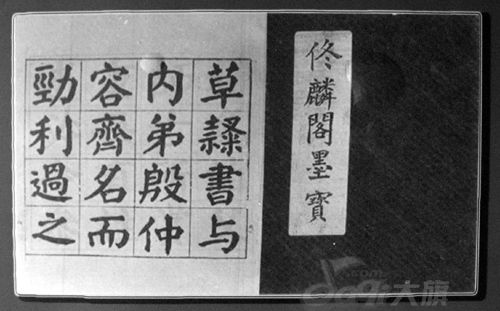 佟麟閣墨寶
草隸書与
内弟殷仲
容齊名而
勁利過之
.com
大旗